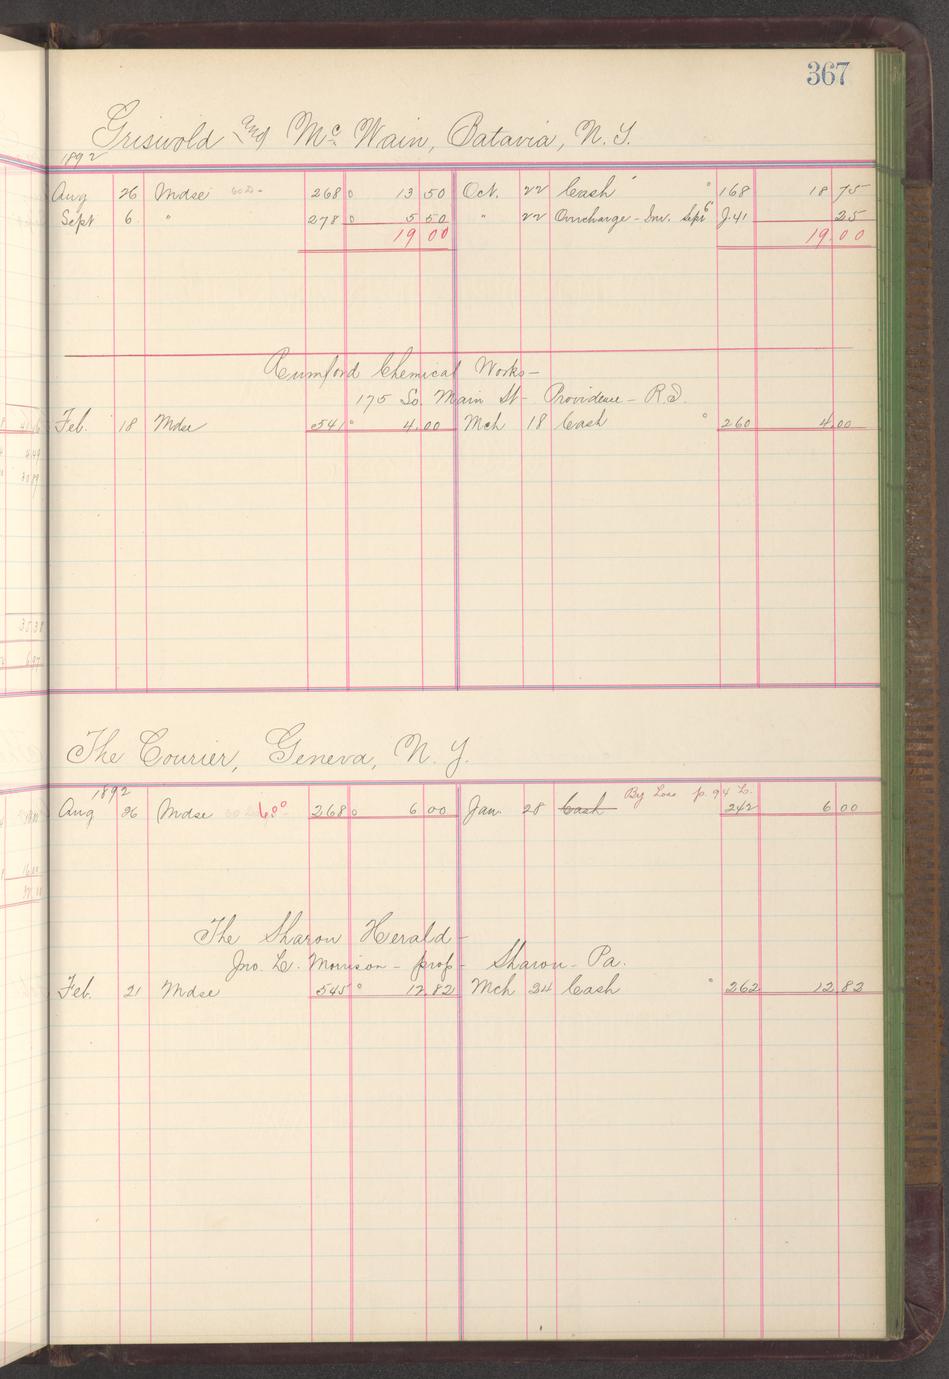 367
Griswold and Mc Wain, Batavia, N.Y.
1892
Aug 26 Mdse 60D- 268 0 13 50 Oct. 22 Cash " 168 18 75
Sept 6 " 278 0 5 50 " 22 Overcharge - Inv. Sept 6 J.41 25
19 00 19.00
Rumford Chemical Works-
175 So. Main St- Providence- R.I.
Feb. 18 Mdse 541 0 4.00 Mch 18 Cash " 260 4.00
The Courier, Geneva, N.Y.
1892 By Loss p. 94 L.
Aug 26 Mdse 268 0 6 00 Jan. 28 Cash 242 6 00
The Sharon Herald-
Jno. L. Morrison - prop- Sharon- Pa.
Feb. 21 Mdse 545 0 12.82 Mch 24 Cash " 262 12.82